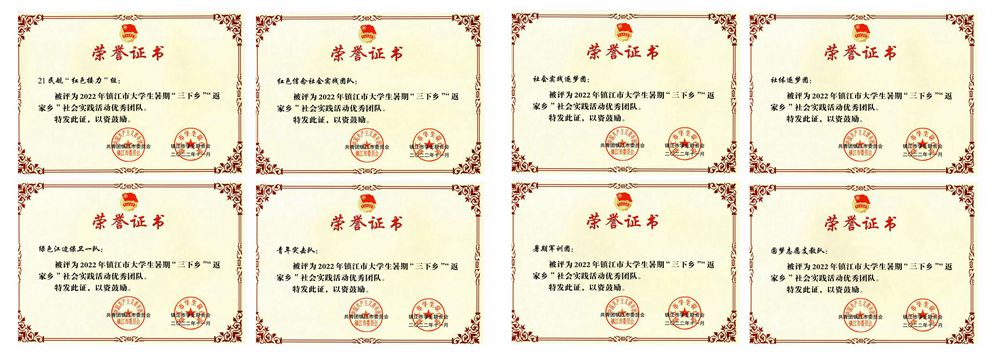 荣誉证书
21民航“红色接力”组：
被评为2022年镇江市大学生暑期“三下乡”“返
家乡”社会实践活动优秀团队。
特发此证，以资鼓励。
共青团镇江市委员会
镇江市学生联合会
二〇二二年十一月
荣誉证书
红色信念社会实践团队：
被评为2022年镇江市大学生暑期“三下乡”“返
家乡”社会实践活动优秀团队。
特发此证，以资鼓励。
共青团镇江市委员会
镇江市学生联合会
二〇二二年十一月
荣誉证书
社会实践逐梦团：
被评为2022年镇江市大学生暑期“三下乡”“返
家乡”社会实践活动优秀团队。
特发此证，以资鼓励。
共青团镇江市委员会
镇江市学生联合会
二〇二二年十一月
荣誉证书
社体逐梦团：
被评为2022年镇江市大学生暑期“三下乡”“返
家乡”社会实践活动优秀团队。
特发此证，以资鼓励。
共青团镇江市委员会
镇江市学生联合会
二〇二二年十一月
荣誉证书
绿色江边保卫一队：
被评为2022年镇江市大学生暑期“三下乡”“返
家乡”社会实践活动优秀团队。
特发此证，以资鼓励。
共青团镇江市委员会
镇江市学生联合会
二〇二二年十一月
荣誉证书
青年突击队：
被评为2022年镇江市大学生暑期“三下乡”“返
家乡”社会实践活动优秀团队。
特发此证，以资鼓励。
共青团镇江市委员会
镇江市学生联合会
二〇二二年十一月
荣誉证书
暑期军训团：
被评为2022年镇江市大学生暑期“三下乡”“返
家乡”社会实践活动优秀团队。
特发此证，以资鼓励。
共青团镇江市委员会
镇江市学生联合会
二〇二二年十一月
荣誉证书
圆梦志愿支教队：
被评为2022年镇江市大学生暑期“三下乡”“返
家乡”社会实践活动优秀团队。
特发此证，以资鼓励。
共青团镇江市委员会
镇江市学生联合会
二〇二二年十一月